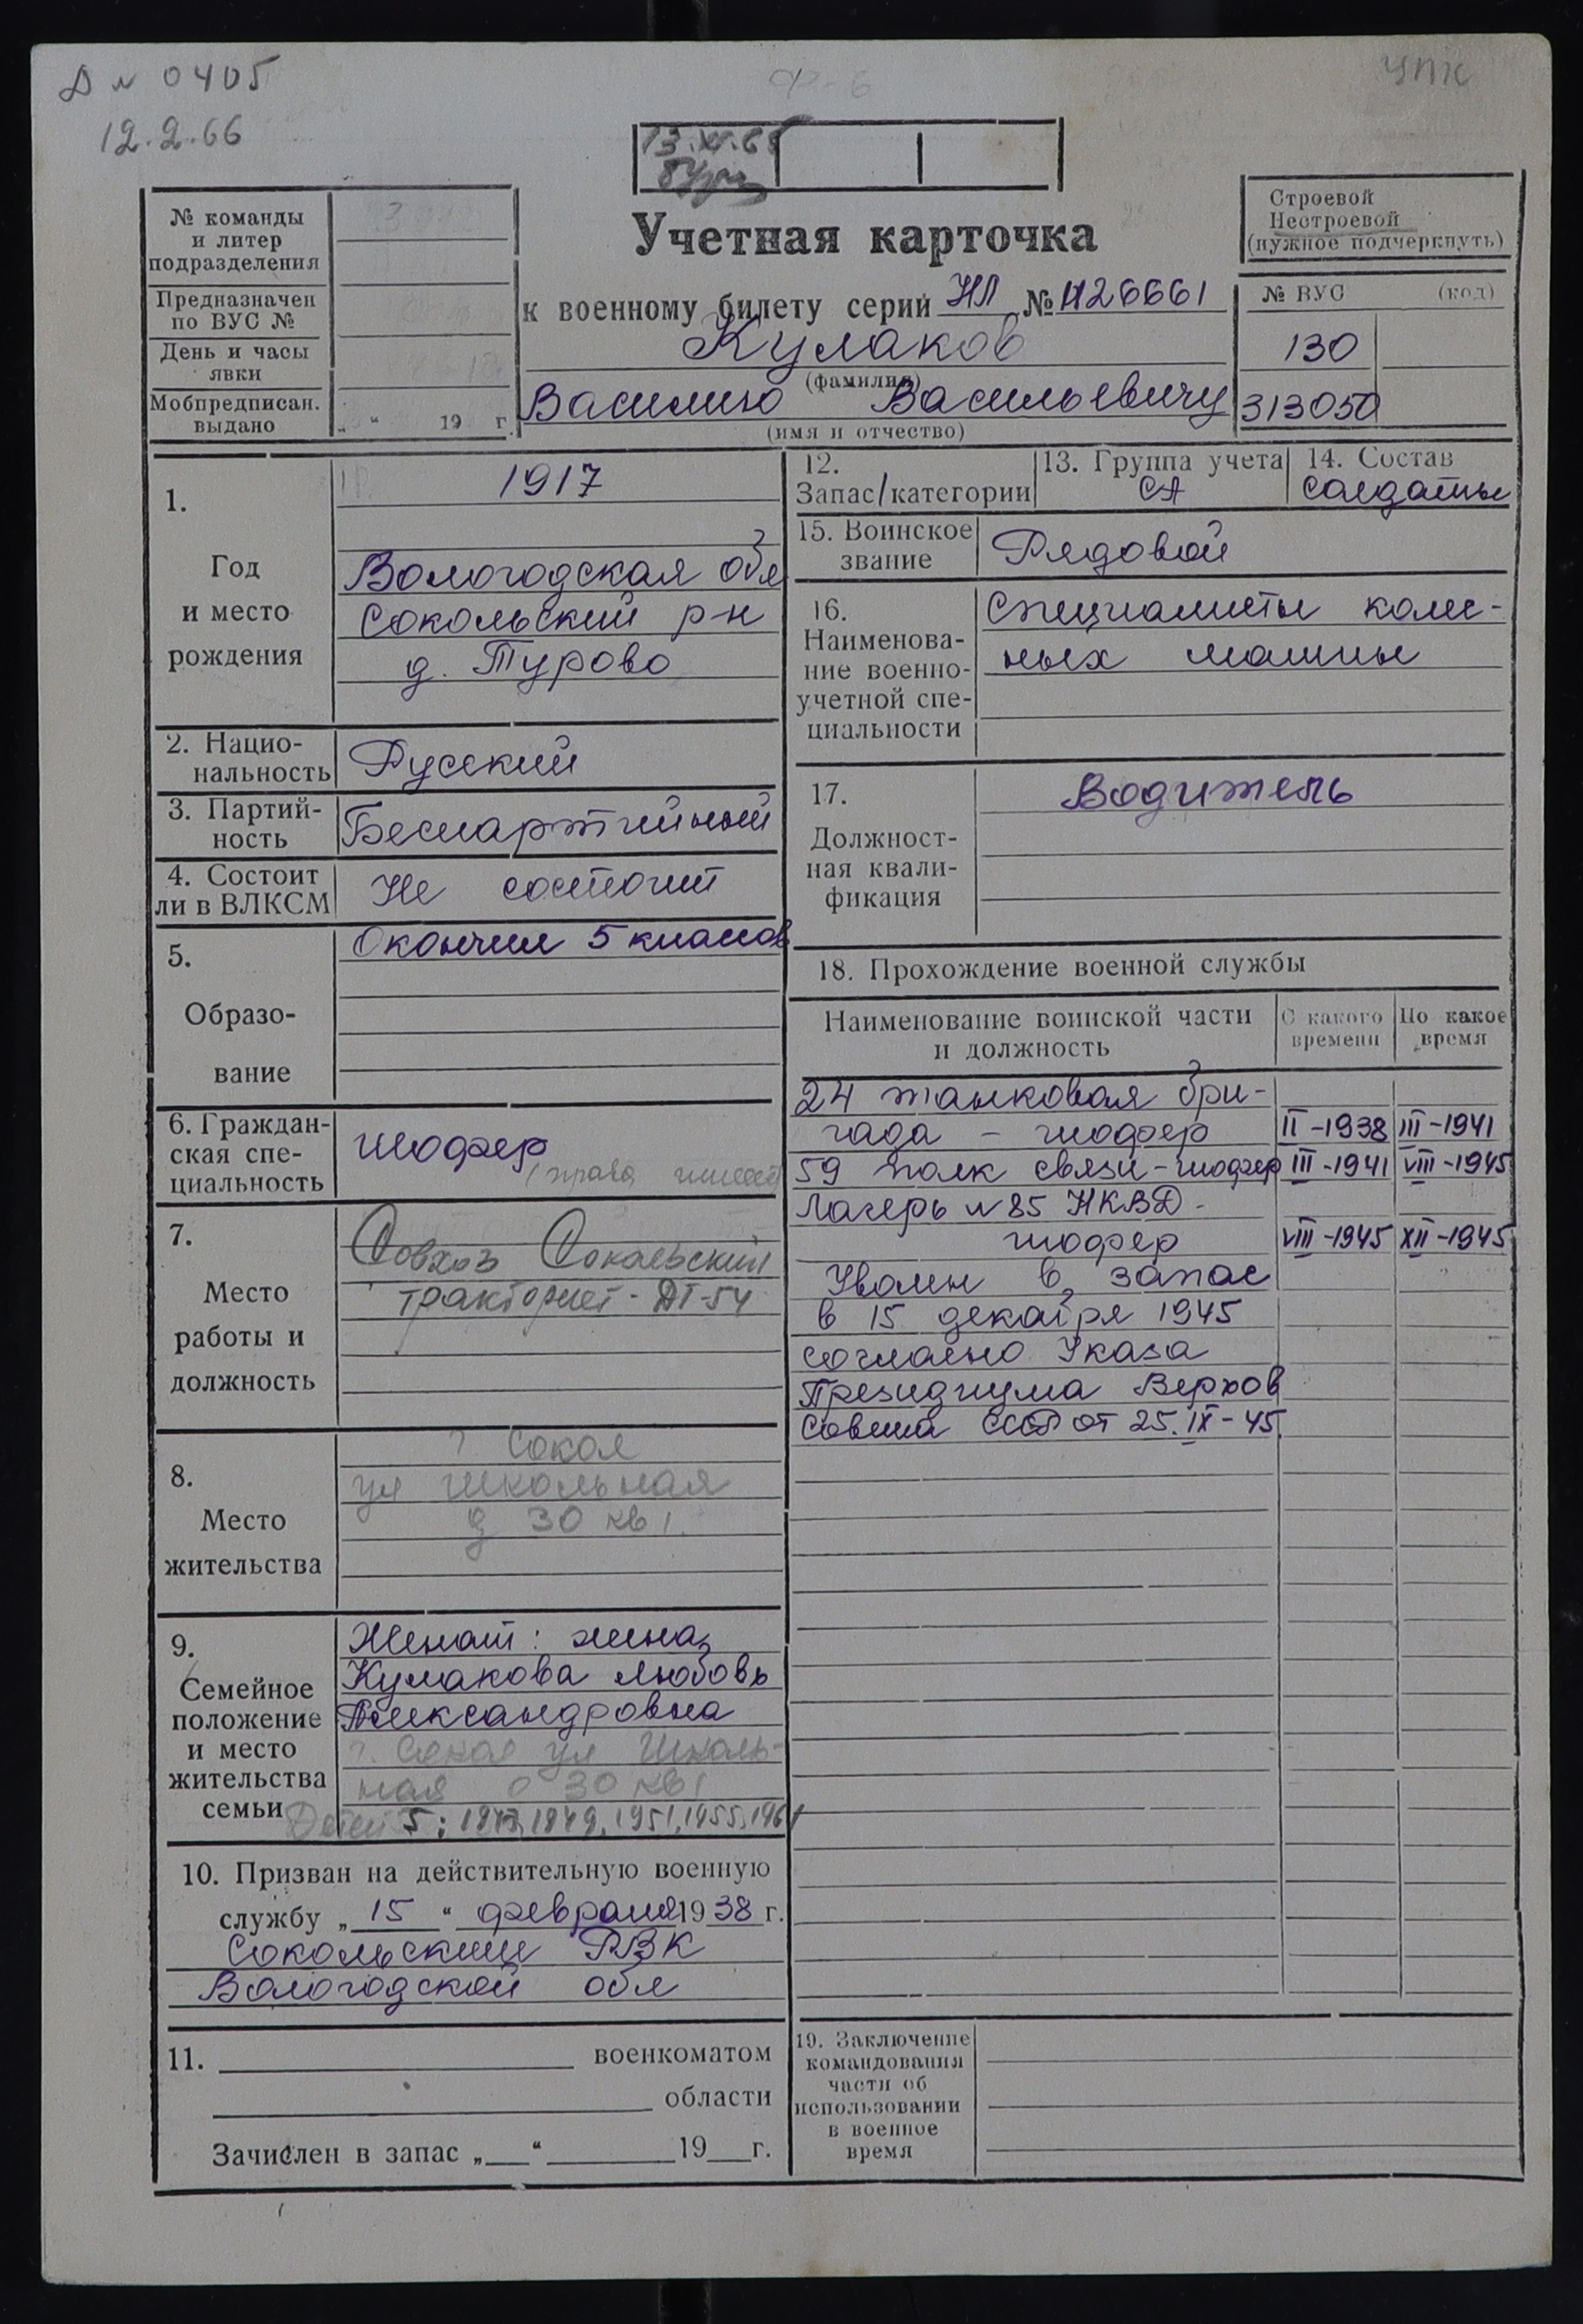 Д № 0405
12.2.66
УПК
13.XI.65
№ команды
и литер
подразделения
Предназначен
по ВУС №
День и часы
явки
Мобпредписан.
выдано
„ “ 19 г.
Учетная карточка
к военному билету серии НЛ № 1126661
Кулаков
(фамилия)
Василию Васильевичу
(имя и отчество)
Строевой
Нестроевой
(нужное подчеркнуть)
№ ВУС (код)
130
313050
1.
Год
и место
рождения
1917
Вологодская обл
Сокольский р-н
д. Турово
2. Нацио-
нальность
Русский
3. Партий-
ность
Беспартийный
4. Состоит
ли в ВЛКСМ
Не состоит
5.
Образо-
вание
Окончил 5 классов
6. Граждан-
ская спе-
циальность
шофер
(права имеет)
7.
Место
работы и
должность
Совхоз Сокольский
тракторист - ДТ-54
8.
Место
жительства
г. Сокол
ул Школьная
д 30 кв 1.
9.
Семейное
положение
и место
жительства
семьи
Женат: жена
Кулакова Любовь
Александровна
г. Сокол ул Школь-
ная д 30 кв 1
Детей 5: 1947, 1949, 1951, 1955, 1961
10. Призван на действительную военную
службу „ 15 “ февраля 1938 г.
Сокольским РВК
Вологодской обл
11. военкоматом
области
Зачислен в запас „ “ 19 г.
12.
Запас/категории
13. Группа учета
СА
14. Состав
солдаты
15. Воинское
звание
Рядовой
16.
Наименова-
ние военно-
учетной спе-
циальности
Специалисты колес-
ных машины
17.
Должност-
ная квали-
фикация
Водитель
18. Прохождение военной службы
Наименование воинской части
и должность
С какого
времени
По какое
время
24 танковая бри-
гада - шофер II-1938 III-1941
59 полк связи - шофер III-1941 VIII-1945
Лагерь № 85 НКВД -
шофер VIII-1945 XII-1945
Уволен в запас
в 15 декабря 1945
согласно Указа
Президиума Верхов
Совета СССР от 25.IX-45.
19. Заключение
командования
части об
использовании
в военное
время